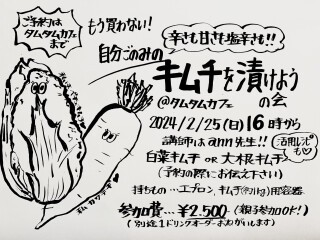 ご予約は
タムタムカフェ
まで
もう買わない!
自分ごのみの
辛さも甘さも塩辛さも!!
キムチを漬けよう
の会
@タムタムカフェ
2024/2/25(日)16時から
講師はann先生!!
活用レシピも
白菜キムチ OR 大根キムチ
(予約の際にお伝え下さい)
持ちもの…エプロン、キムチ(約1kg)用容器
参加費…¥2,500(親子参加OK!)
(別途1ドリンクオーダーおねがいします)